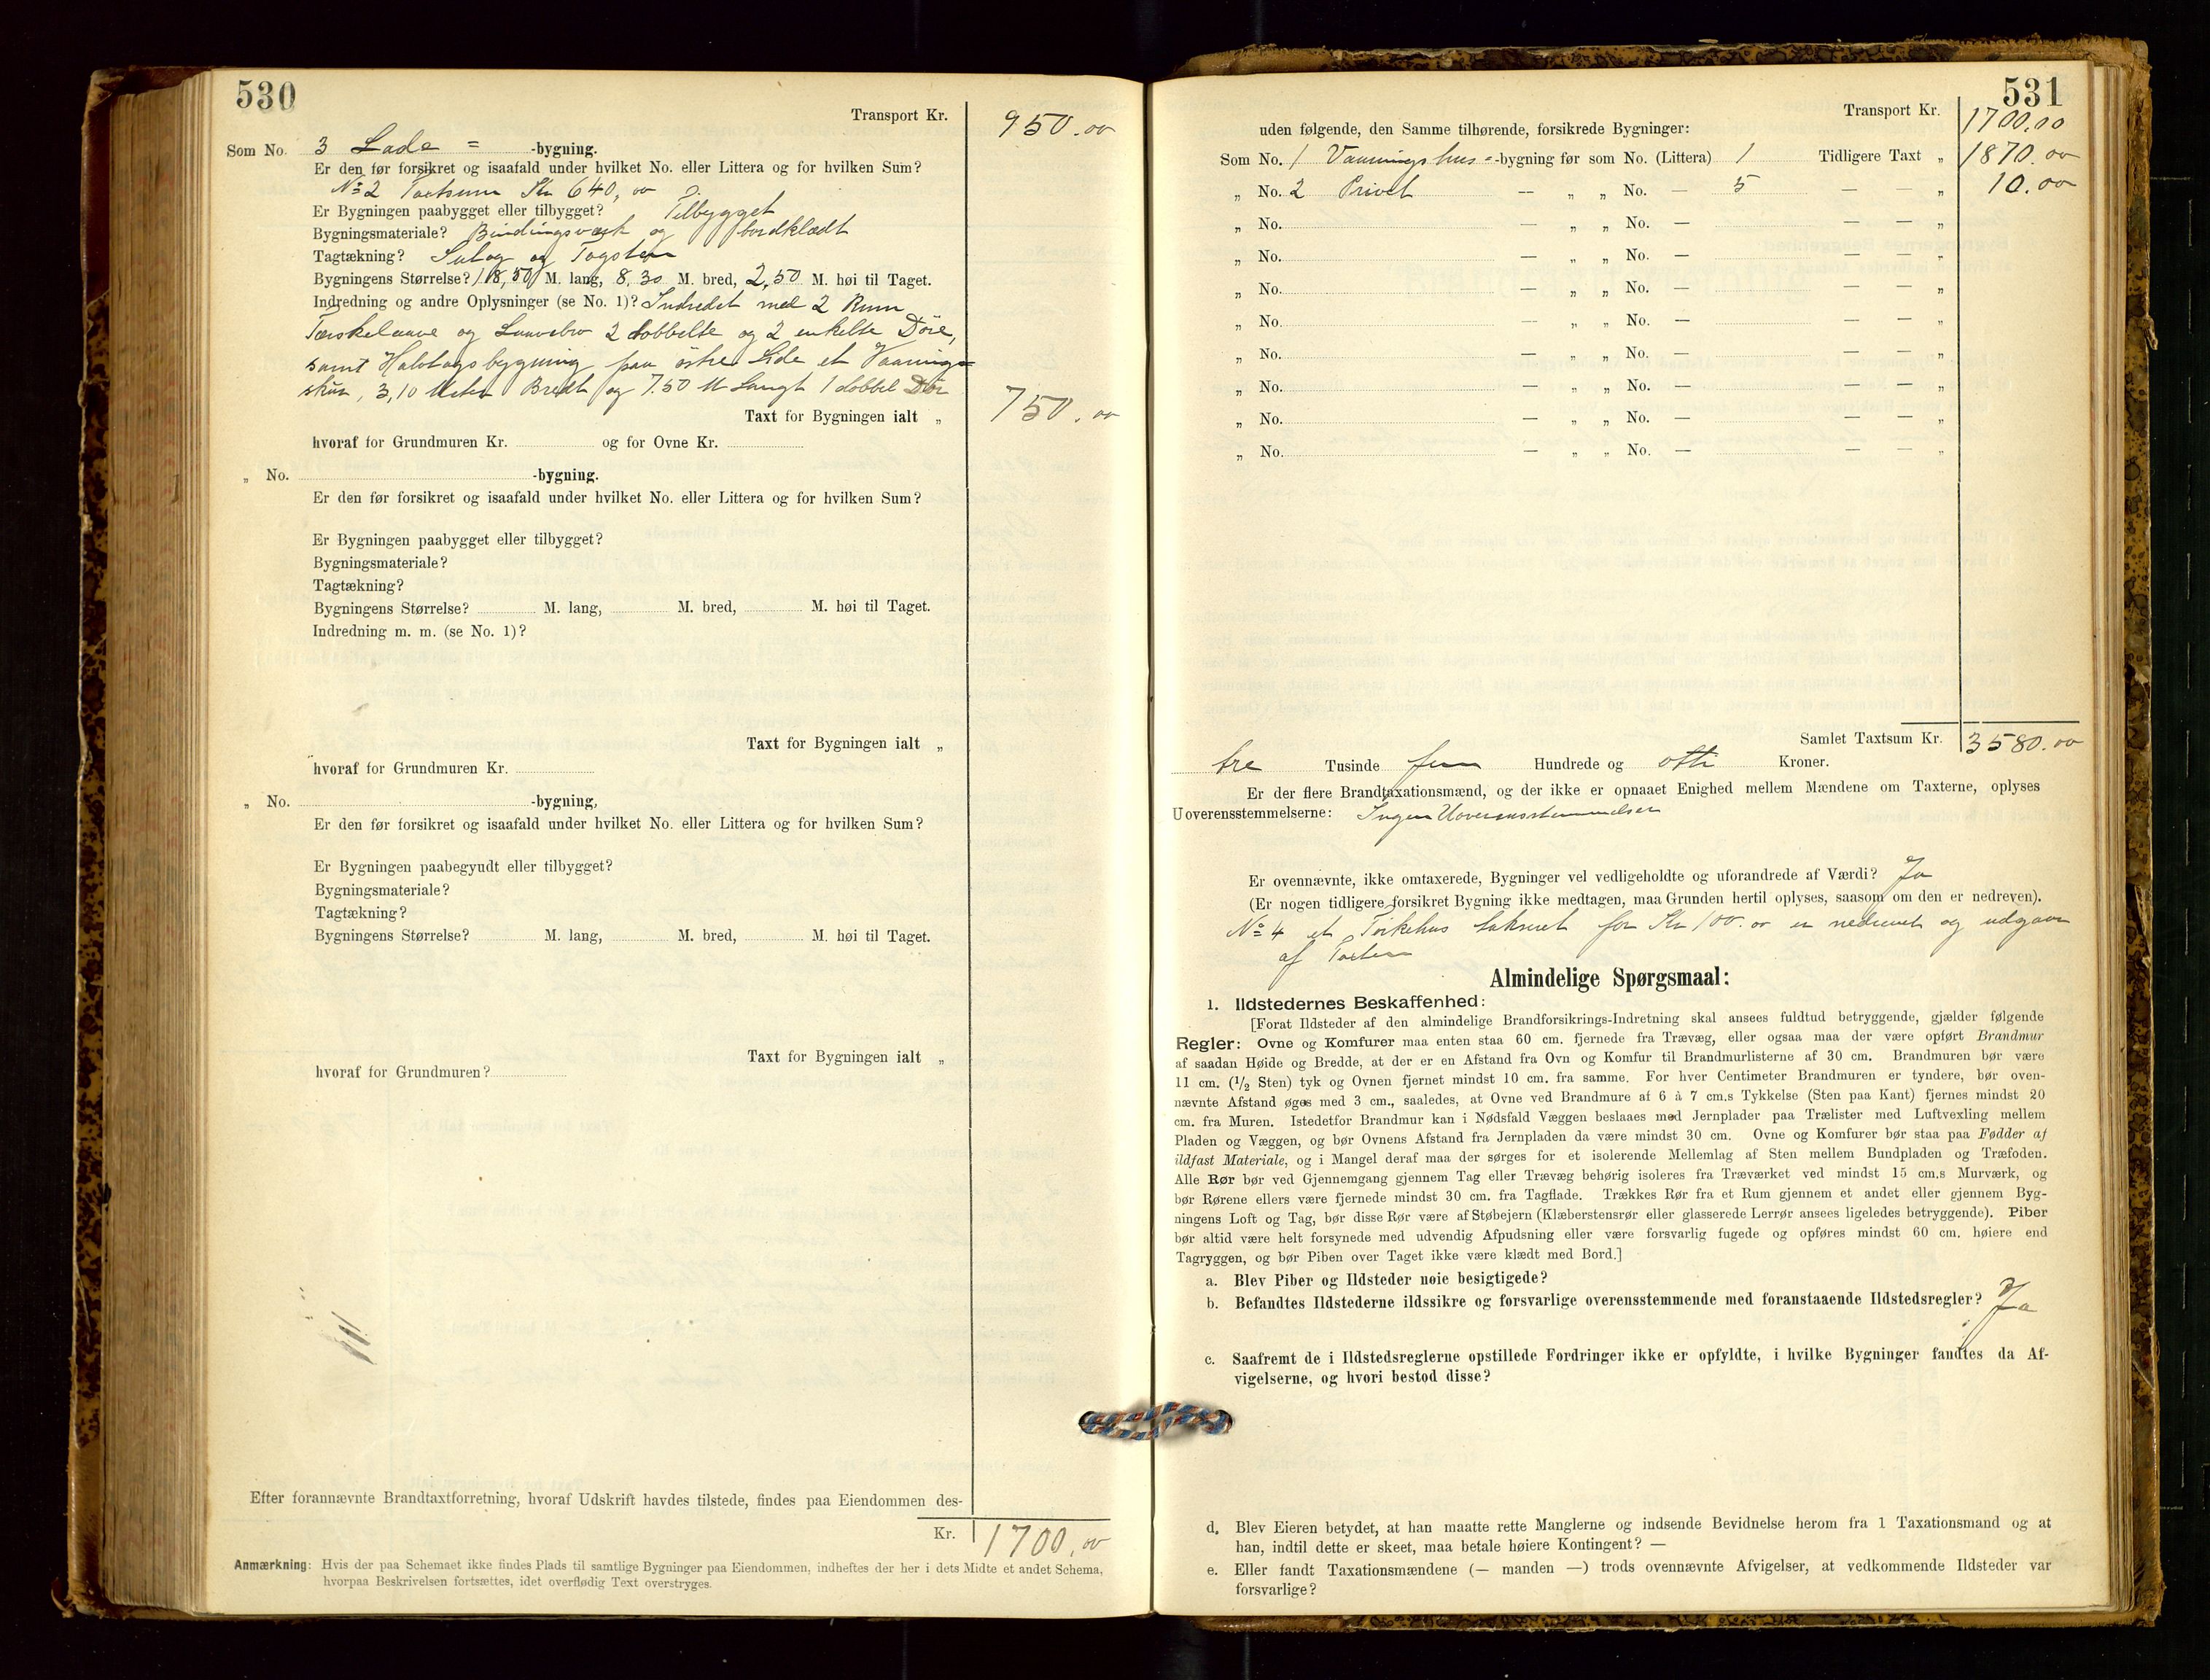 530
Transport Kr. 950.00
Som No. 3 Lade = -bygning.
Er den før forsikret og isaafald under hvilket No. eller Littera og for hvilken Sum?
No 2 Taxtsum Kr 640,00
Er Bygningen paabygget eller tilbygget? Tilbygget
Bygningsmateriale? Bindingsværk og bordklædt
Tagtækning? Sutag og Tagsten
Bygningens Størrelse? 18,50 M. lang, 8,30 M. bred, 2,50 M. høi til Taget.
Indredning og andre Oplysninger (se No. 1)? Indredet med 2 Rum
Tærskelaave og Laavebro 2 dobbelte og 2 enkelte Döre,
samt Halvtagsbygning paa östre Side et Vaanings=
skur, 3,10 Meter Bredt og 7.50 M Langt 1 dobbel Dör
Taxt for Bygningen ialt „ 750.00
hvoraf for Grundmuren Kr. og for Ovne Kr.
„ No. -bygning.
Er den før forsikret og isaafald under hvilket No. eller Littera og for hvilken Sum?
Er Bygningen paabygget eller tilbygget?
Bygningsmateriale?
Tagtækning?
Bygningens Størrelse? M. lang, M. bred, M. høi til Taget.
Indredning m. m. (se No. 1)?
Taxt for Bygningen ialt „
hvoraf for Grundmuren Kr.
„ No. -bygning,
Er den før forsikret og isaafald under hvilket No. eller Littera og for hvilken Sum?
Er Bygningen paabegyndt eller tilbygget?
Bygningsmateriale?
Tagtækning?
Bygningens Størrelse? M. lang, M. bred, M. høi til Taget.
Taxt for Bygningen ialt „
hvoraf for Grundmuren?
Efter forannævnte Brandtaxtforretning, hvoraf Udskrift havdes tilstede, findes paa Eiendommen des-
Kr. 1700.00
Anmærkning: Hvis der paa Schemaet ikke findes Plads til samtlige Bygninger paa Eiendommen, indheftes der her i dets Midte et andet Schema,
hvorpaa Beskrivelsen fortsættes, idet overflødig Text overstryges.
531
Transport Kr. 1700.00
uden følgende, den Samme tilhørende, forsikrede Bygninger:
Som No. 1 Vaaningshus=-bygning før som No. (Littera) 1 Tidligere Taxt „ 1870.00
„ No. 2 Privet — „ „ No. — 5 — — „ 10.00
„ No. — „ „ No. — — — „
„ No. — „ „ No. — — — „
„ No. — „ „ No. — — — „
„ No. — „ „ No. — — — „
„ No. — „ „ No. — — — „
„ No. — „ „ No. — — — „
„ No. — „ „ No. — — — „
„ No. — „ „ No. — — — „
Samlet Taxtsum Kr. 3580.00
tre Tusinde fem Hundrede og otti Kroner.
Er der flere Brandtaxationsmænd, og der ikke er opnaaet Enighed mellem Mændene om Taxterne, oplyses
Uoverensstemmelserne: Ingen Uoverensstemmelser
Er ovennævnte, ikke omtaxerede, Bygninger vel vedligeholdte og uforandrede af Værdi? Ja
(Er nogen tidligere forsikret Bygning ikke medtagen, maa Grunden hertil oplyses, saasom om den er nedreven).
No 4 et Törkehus takseret for Kr 100.00 er nedrevet og udgaar
af Taxten
Almindelige Spørgsmaal:
1. Ildstedernes Beskaffenhed:
[Forat Ildsteder af den almindelige Brandforsikrings-Indretning skal ansees fuldtud betryggende, gjælder følgende
Regler: Ovne og Komfurer maa enten staa 60 cm. fjernede fra Trævæg, eller ogsaa maa der være opført Brandmur
af saadan Høide og Bredde, at der er en Afstand fra Ovn og Komfur til Brandmurlisterne af 30 cm. Brandmuren bør være
11 cm. (1/2 Sten) tyk og Ovnen fjernet mindst 10 cm. fra samme. For hver Centimeter Brandmuren er tyndere, bør oven-
nævnte Afstand øges med 3 cm., saaledes, at Ovne ved Brandmure af 6 à 7 cm.s Tykkelse (Sten paa Kant) fjernes mindst 20
cm. fra Muren. Istedetfor Brandmur kan i Nødsfald Væggen beslaaes med Jernplader paa Trælister med Luftvexling mellem
Pladen og Væggen, og bør Ovnens Afstand fra Jernpladen da være mindst 30 cm. Ovne og Komfurer bør staa paa Fødder af
ildfast Materiale, og i Mangel deraf maa der sørges for et isolerende Mellemlag af Sten mellem Bundpladen og Træfoden.
Alle Rør bør ved Gjennemgang gjennem Tag eller Trævæg behørig isoleres fra Træværket ved mindst 15 cm.s Murværk, og
bør Rørene ellers være fjernede mindst 30 cm. fra Tagflade. Trækkes Rør fra et Rum gjennem et andet eller gjennem Byg-
ningens Loft og Tag, bør disse Rør være af Støbejern (Klæberstensrør eller glasserede Lerrør ansees ligeledes betryggende). Piber
bør altid være helt forsynede med udvendig Afpudsning eller være forsvarlig fugede og opføres mindst 60 cm. høiere end
Tagryggen, og bør Piben over Taget ikke være klædt med Bord.]
a. Blev Piber og Ildsteder nøie besigtigede?
b. Befandtes Ildstederne ildssikre og forsvarlige overensstemmende med foranstaaende Ildstedsregler? Ja
c. Saafremt de i Ildstedsreglerne opstillede Fordringer ikke er opfyldte, i hvilke Bygninger fandtes da Af-
vigelserne, og hvori bestod disse?
d. Blev Eieren betydet, at han maatte rette Manglerne og indsende Bevidnelse herom fra 1 Taxationsmand og at
han, indtil dette er skeet, maa betale høiere Kontingent? —
e. Eller fandt Taxationsmændene (— manden —) trods ovennævnte Afvigelser, at vedkommende Ildsteder var
forsvarlige?